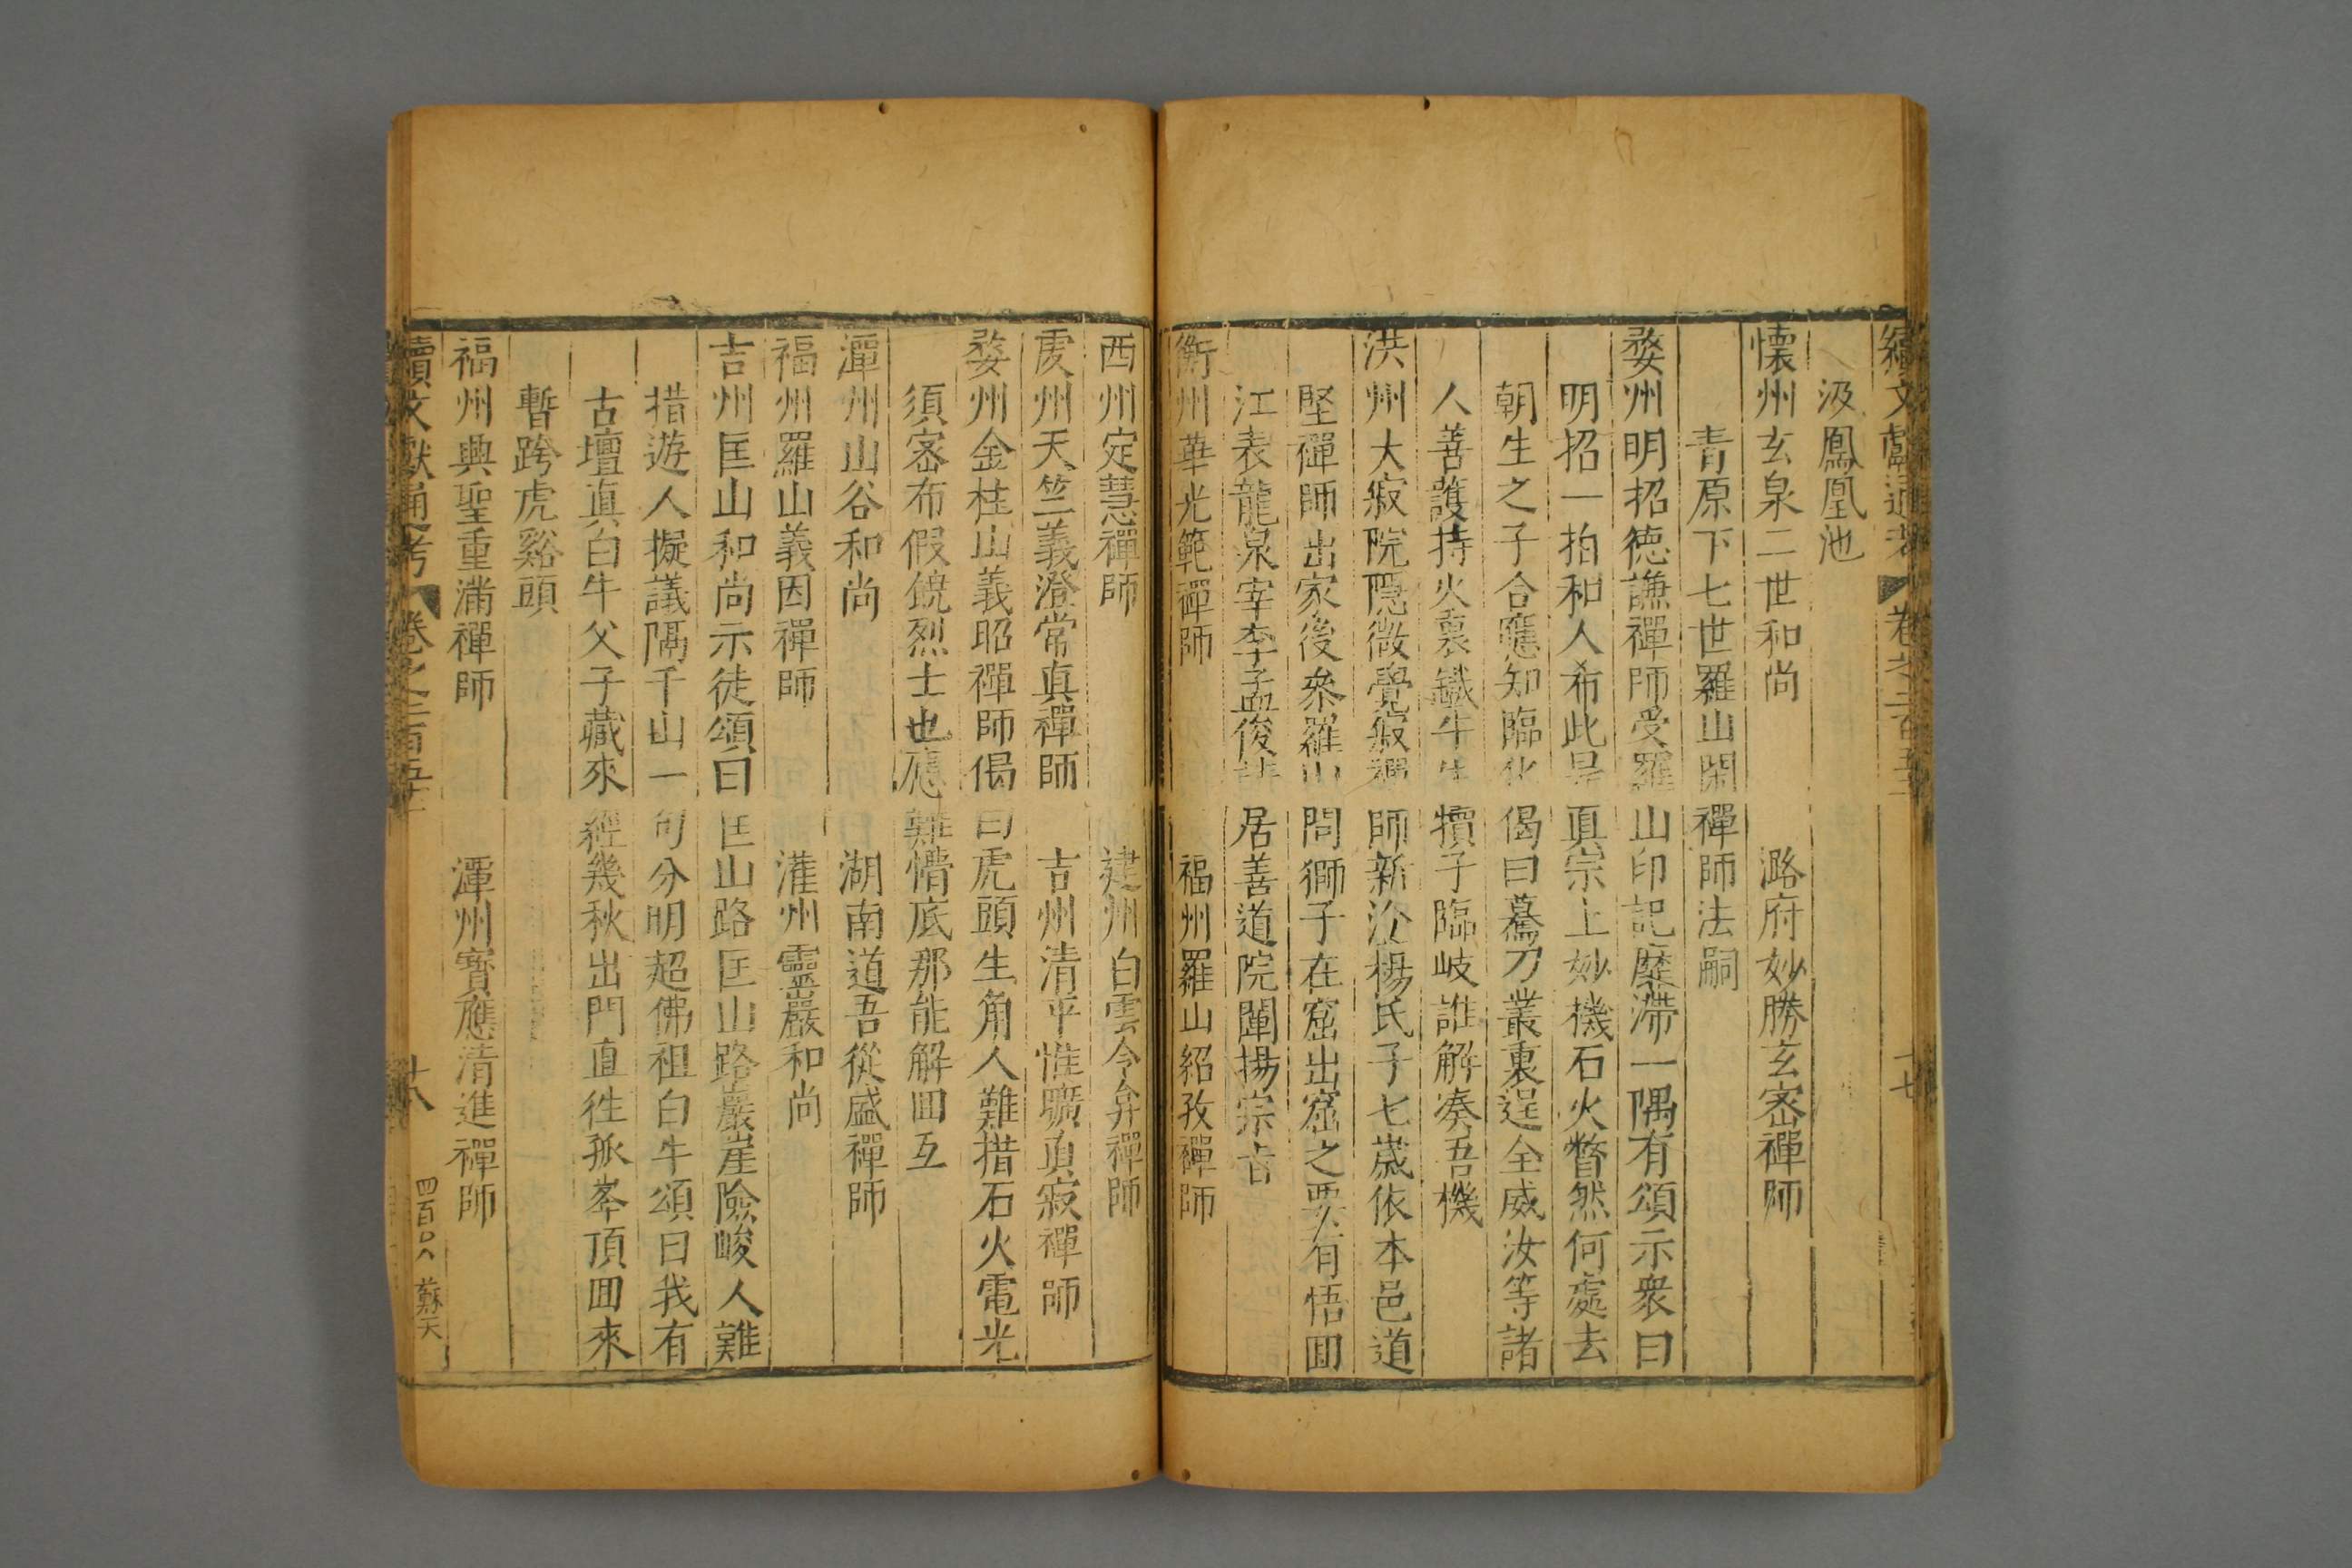 續文獻通考 卷之二百五十 十七
汲鳳凰池
懷州玄泉二世和尚 潞府妙勝玄密禪師
青原下七世羅山閑禪師法嗣
婺州明招德謙禪師受羅山印記靡滯一隅有頌示衆曰
明招一拍和人希此是真宗上妙機石火瞥然何處去
朝生之子合應知臨化偈曰驀刀叢裏逞全威汝等諸
人善護持火裏鐵牛生犢子臨岐誰解凑吾機
洪州大寂院隱微覺寂禪師新淦楊氏子七歲依本邑道
堅禪師出家後叅羅山問獅子在窟出窟之要有悟囬
江表龍泉宰李孟俊請居善道院闡揚宗旨
衡州華光範禪師 福州羅山紹孜禪師
西州定慧禪師 建州白雲令弇禪師
虔州天竺義澄常真禪師 吉州清平惟曠真寂禪師
婺州金柱山義昭禪師偈曰虎頭生角人難措石火電光
須密布假饒烈士也應難懵底那能解囬互
潭州山谷和尚 湖南道吾從盛禪師
福州羅山義因禪師 灌州靈巖和尚
吉州匡山和尚示徒頌曰匡山路匡山路巖崖險峻人難
措遊人擬議隔千山一句分明超佛祖白牛頌曰我有
古壇真白牛父子藏來經幾秋出門直徃孤峯頂囬來
暫跨虎谿頭
福州興聖重滿禪師 潭州寳應清進禪師
續文獻通考 卷之二百五十 十八 四百〇八 蘇天